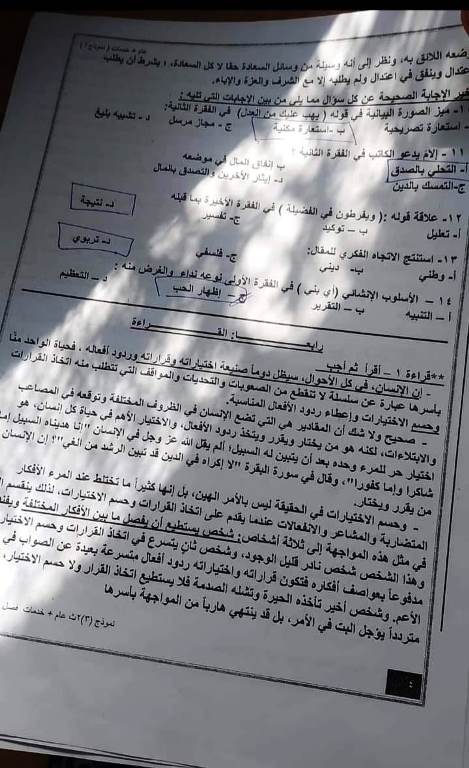 عام + خدمات (نموذج ٢)
وضعه اللائق به، ونظر إلى أنه وسيلة من وسائل السعادة حقا لا كل السعادة، بشرط أن يطلب
اعتدال وينفق في اعتدال ولم يطلبه إلا مع الشرف والعزة والإباء.
خير الإجابة الصحيحة عن كل سؤال مما يلي من بين الإجابات التي تليه :
ميز الصورة البيانية في قوله ( يهب عليك من الجدل) في الفقرة الثانية:
استعارة تصريحية ب -استعارة مكنية ج - مجاز مرسل د - تشبيه بليغ
١١ - إلام يدعو الكاتب في الفقرة الثانية ؟
أ- التحلي بالصدق ب إنفاق المال في موضعه
ج-التمسك بالدين د- إيثار الآخرين والتصدق بالمال
١٢- علاقة قوله :( ويفرطون في الفضيلة ) في الفقرة الأخيرة بما قبله
أ- تعليل ب – توكيد ج- تفسير د- نتيجة
١٣- استنتج الاتجاه الفكري للمقال:
أ- وطني ب- ديني ج- فلسفي د- تربوي
١٤ – الأسلوب الإنشائي (أي بني ) في الفقرة الأولى نوعه نداء والغرض منه :
أ – التنبيه ب – التقرير ج – إظهار الحب د – التعظيم
رابعا: القـــراءة
**قراءة ١ – أقرأ ثم أجب
- إن الإنسان، في كل الأحوال، سيظل دوما صنيعة اختياراته وقراراته وردود أفعاله ، فحياة الواحد منا
بأسرها عبارة عن سلسلة لا تنقطع من الصعوبات والتحديات والمواقف التي تتطلب منه اتخاذ القرارات
وحسم الاختيارات وإعطاء ردود الأفعال المناسبة.
- صحيح ولا شك أن المقادير هي التي تضع الإنسان في الظروف المختلفة وتوقعه في المصاعب
والابتلاءات، لكنه هو من يختار ويقرر ويتخذ ردود الأفعال، والاختيار الأهم في حياة كل إنسان، هو
اختيار حر للمرء وحده بعد أن يتبين له السبيل؛ ألم يقل الله عز وجل في الإنسان "إنا هديناه السبيل إما
شاكرا وإما كفورا"، وقال في سورة البقرة "لا إكراه في الدين قد تبين الرشد من الغي"؟ إن الإنسان
من يقرر ويختار.
- وحسم الاختيارات في الحقيقة ليس بالأمر الهين، بل إنها كثيراً ما تختلط عند المرء الأفكار
المتضاربة والمشاعر والانفعالات عندما يقدم على اتخاذ القرارات وحسم الاختيارات، لذلك ينقسم
في مثل هذه المواجهة إلى ثلاثة أشخاص: شخص يستطيع أن يفصل ما بين الأفكار المختلفة
وهذا الشخص شخص نادر قليل الوجود، وشخص ثان يتسرع في اتخاذ القرارات وحسم الاختيار
مدفوعاً بعواصف أفكاره فتكون قراراته واختياراته ردود أفعال متسرعة بعيدة عن الصواب في
الأعم، وشخص أخير تأخذه الحيرة وتشله الصدمة فلا يستطيع اتخاذ القرار ولا حسم الاختيار،
متردداً يؤجل البت في الأمر، بل قد ينتهي هارباً من المواجهة بأسرها
نموذج (٢)٣ث عام + خدمات فصل
٤